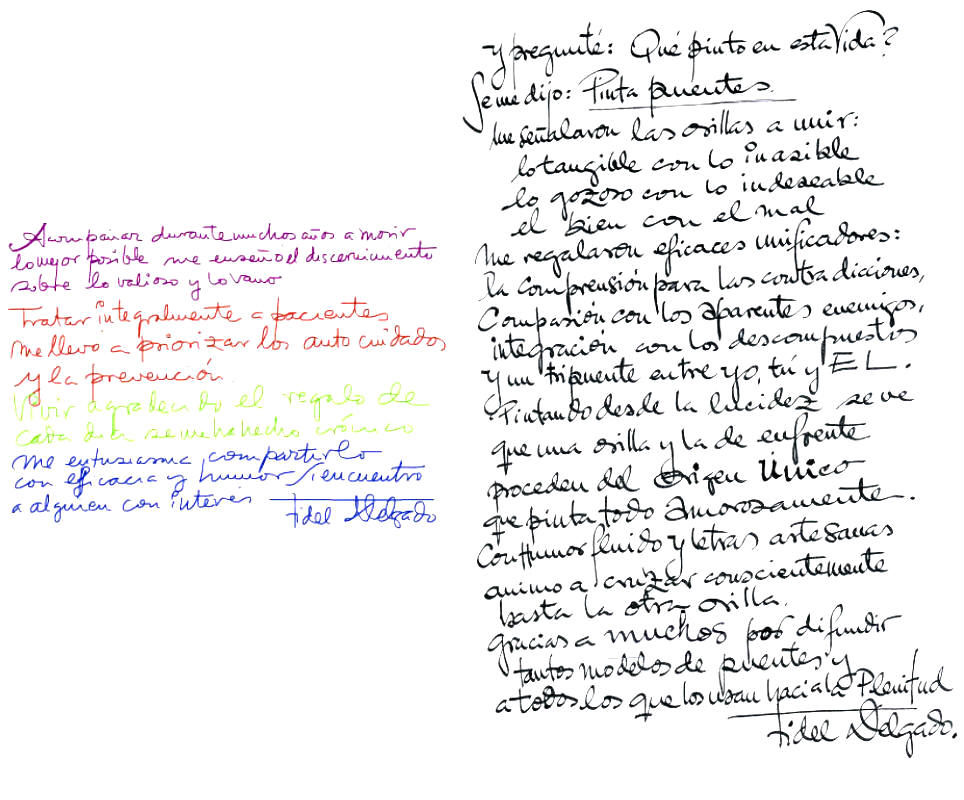 Acompañar durante muchos años a morir
lo mejor posible me enseñó el discernimiento
sobre lo valioso y lo vano
Tratar integralmente a pacientes
me llevó a priorizar los auto cuidados
y la prevención.
Vivir agradeciendo el regalo de
cada día se me ha hecho crónico
me entusiasma compartirlo
con eficacia y humor si encuentro
a alguien con interés
Fidel Delgado
y pregunté: Qué pinto en esta Vida?
Se me dijo: Pinta puentes.
Me señalaron las orillas a unir:
lo tangible con lo inasible
lo gozoso con lo indeseable
el bien con el mal
Me regalaron eficaces unificadores:
la comprensión para las contradicciones,
Compasión con los aparentes enemigos,
integración con los descompuestos
y un tripuente entre yo, tú y EL.
Pintando desde la lucidez se ve
que una orilla y la de enfrente
proceden del Origen Único
que pinta todo Amorosamente.
Con Humor fluido y letras artesanas
animo a cruzar conscientemente
hasta la otra orilla.
gracias a muchos por difundir
tantos modelos de puentes y
a todos los que los usan hacia la Plenitud
Fidel Delgado.